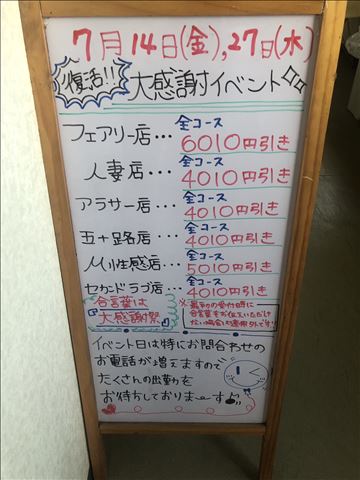 7月14日(金),27日(木)
復活!!
大感謝イベント
フェアリー店・・・全コース6010円引き
人妻店・・・全コース4010円引き
アラサー店・・・全コース4010円引き
五十路店・・・全コース4010円引き
M性感店・・・全コース5010円引き
セカンドラブ店・・・全コース4010円引き
合言葉は
『大感謝祭』
※最初の受付時に
合言葉をお伝えいただけ
ない場合は適用外です!
イベント日は特にお問合わせの
お電話が増えますので
たくさんの出勤を
お待ちしておりまーす